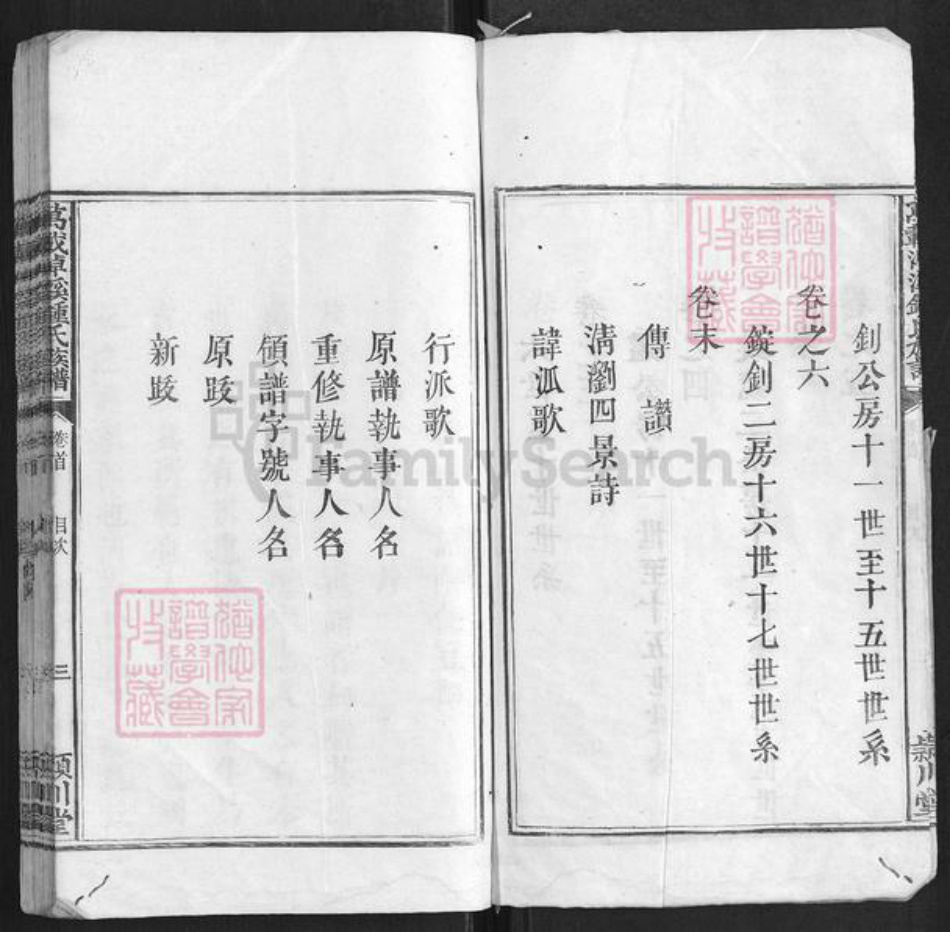 釗公房十一世至十五世世系
卷之六
錠釗二房十六世十七世世系
卷末
傳讚
淸瀏四景詩
諱派歌
行派歌
原譜執事人名
重修執事人名
領譜字號人名
原跋
新跋
萬載淸溪鍾氏族譜
卷首
目次
三
潁川堂
猶他家譜學會收藏
猶他家譜學會收藏
FamilySearch